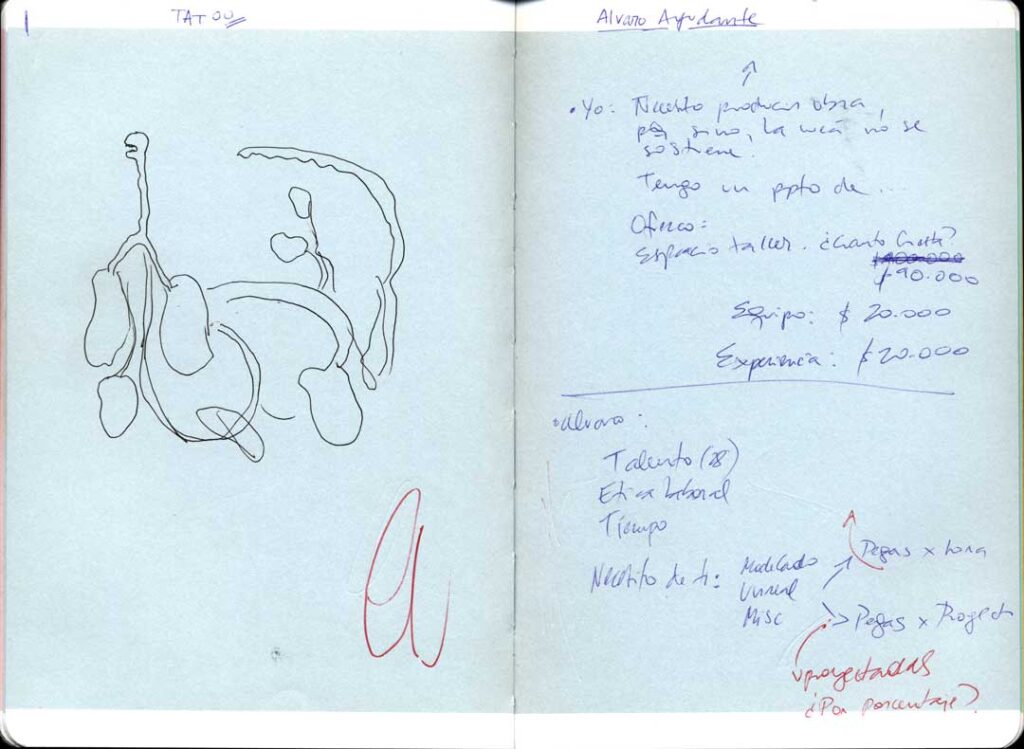 TATOO
Alvaro Ayudante
• Yo: Necesito producir obra,
sino, la weá no se
sostiene.
Tengo un ppto de...
Ofrezco:
Espacio taller. ¿Cuanto Cuesta?
$100.000
$90.000
Equipo: $ 20.000
Experiencia: $20.000
• Alvaro:
Talento (28)
Etica laboral
Tiempo
Necesito de ti: Modelado
Unreal
Misc
Pegas x hora
> Pegas x Proyecto
proyectadas
¿Por porcentaje?